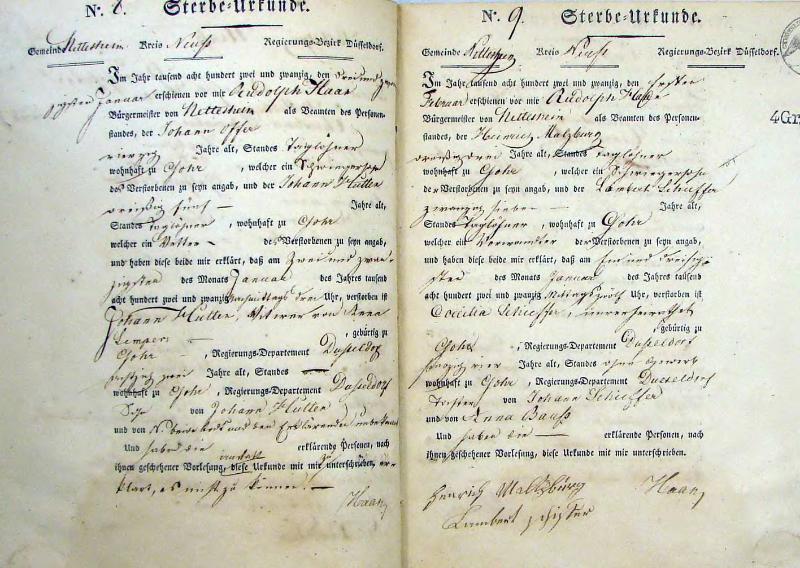 Nr. 8. Sterbe-Urkunde.
Gemeinde Nettesheim Kreis Neuß Regierungs-Bezirk Düsseldorf.
Im Jahr tausend acht hundert zwei und zwanzig, den drei und zwan
zigsten Januar erschienen vor mir Rudolph Haan
Bürgermeister von Nettesheim als Beamten des Personen-
standes, der Johann Offer
vierzig Jahre alt, Standes Taglöhner
wohnhaft zu Gohr, welcher ein Schwiegersohn
des Verstorbenen zu seyn angab, und der Johann Hütten
dreißig fünf — Jahre alt,
Standes Taglöhner, wohnhaft zu Gohr
welcher ein Vetter — des Verstorbenen zu seyn angab,
und haben diese beide mir erklärt, daß am zwei und zwan
zigsten des Monats Januar des Jahres tausend
acht hundert zwei und zwanzig Nachmittags drei Uhr, verstorben ist
Johann Hütten, Witwer von Anna
Lempers, gebürtig zu
Gohr, Regierungs-Departement Dusseldorf
zwei Jahre alt, Standes —
wohnhaft zu Gohr, Regierungs-Departement Dusseldorf
Sohn von Johann Hütten
und von den Erklärenden unbekannt
Und haben die erklärende Personen, nach
ihnen geschehener Vorlesung, diese Urkunde mit mir zu unterschreiben, er
klärt, es nicht zu können. —
Haan
Nr. 9. Sterbe-Urkunde.
Gemeinde Nettesheim Kreis Neuß Regierungs-Bezirk Düsseldorf.
4Gr
Im Jahr, tausend acht hundert zwei und zwanzig, den ersten
Februar erschienen vor mir Rudolph Haan
Bürgermeister von Nettesheim als Beamten des Personen-
standes, der Heinrich Malzburg
dreißig drei Jahre alt, Standes Taglöhner
wohnhaft zu Gohr, welcher ein Schwiegersohn
der Verstorbenen zu seyn angab, und der Lambert Schieffer
zwanzig sieben — Jahre alt,
Standes Taglöhner, wohnhaft zu Gohr
welcher ein Verwandter der Verstorbenen zu seyn angab,
und haben diese beide mir erklärt, daß am ein und dreißig
sten des Monats Januar des Jahres tausend
acht hundert zwei und zwanzig Mittags zwölf Uhr, verstorben ist
Caecilia Schieffer, unverheirathet
, gebürtig zu
Gohr, Regierungs-Departement Dusseldorf
vier Jahre alt, Standes ohne Gewerb
wohnhaft zu Gohr, Regierungs-Departement Duesseldorf
Tochter von Johann Schieffer
und von Anna Bauß
Und haben die — erklärende Personen, nach
ihnen geschehener Vorlesung, diese Urkunde mit mir unterschrieben.
Henrich Maltzburg Haan
Lambert schiffer